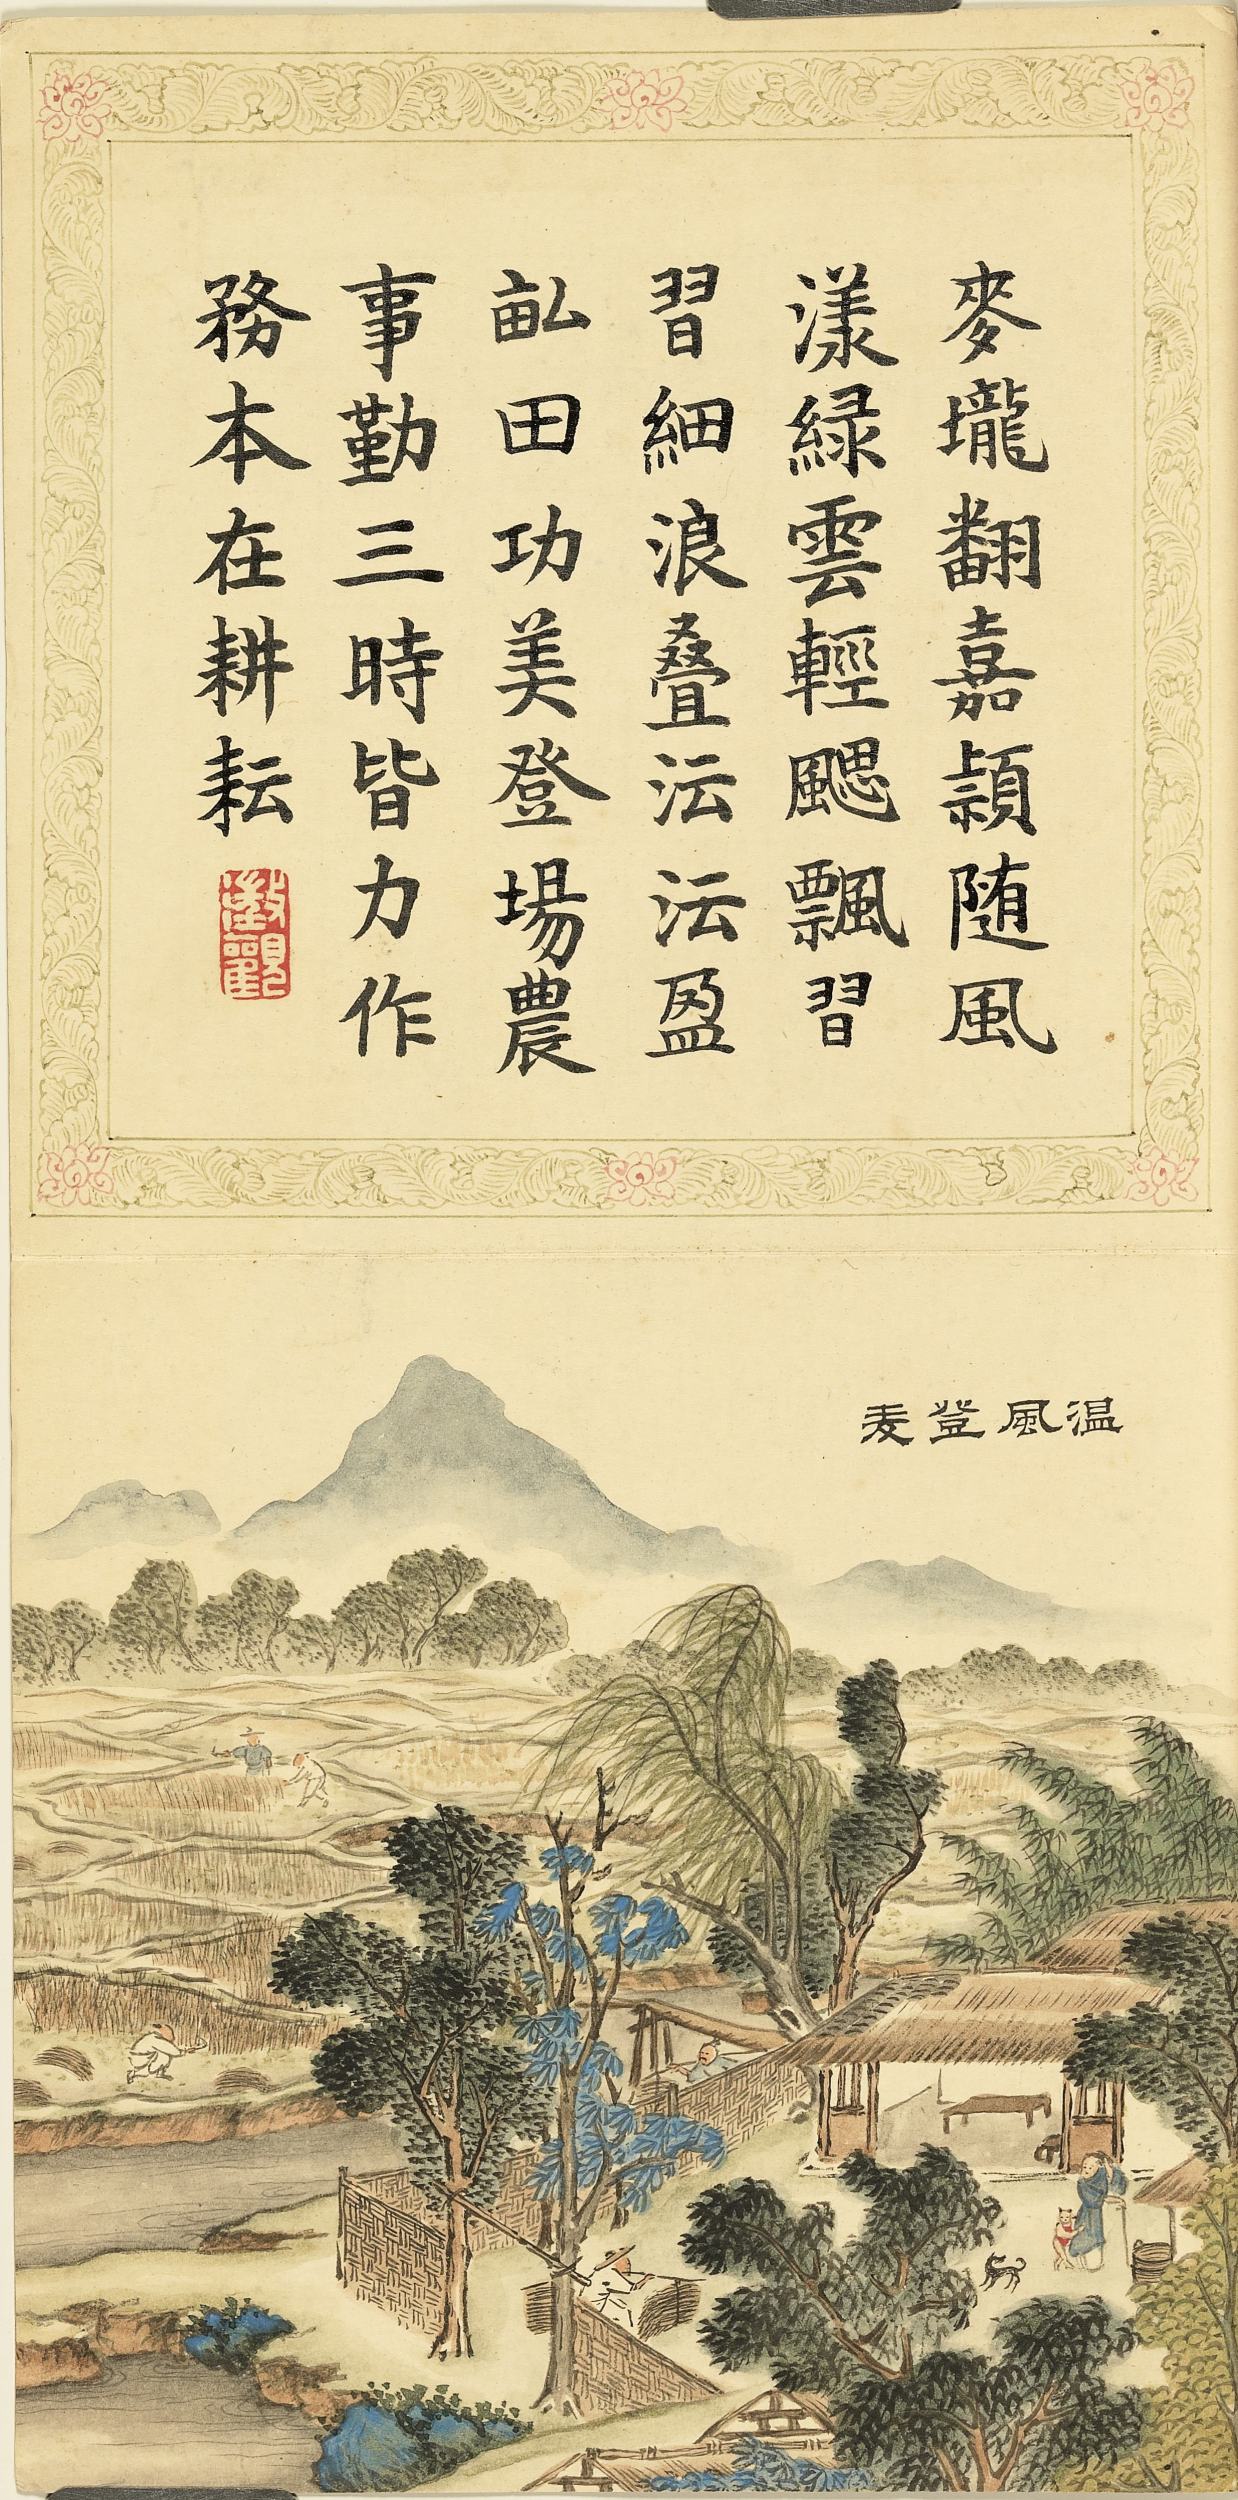 麥壠翻嘉頴随風
漾緑雲輕颸飄習
習細浪叠沄沄盈
畆田功美登場農
事勤三時皆力作
務本在耕耘
温風登麦